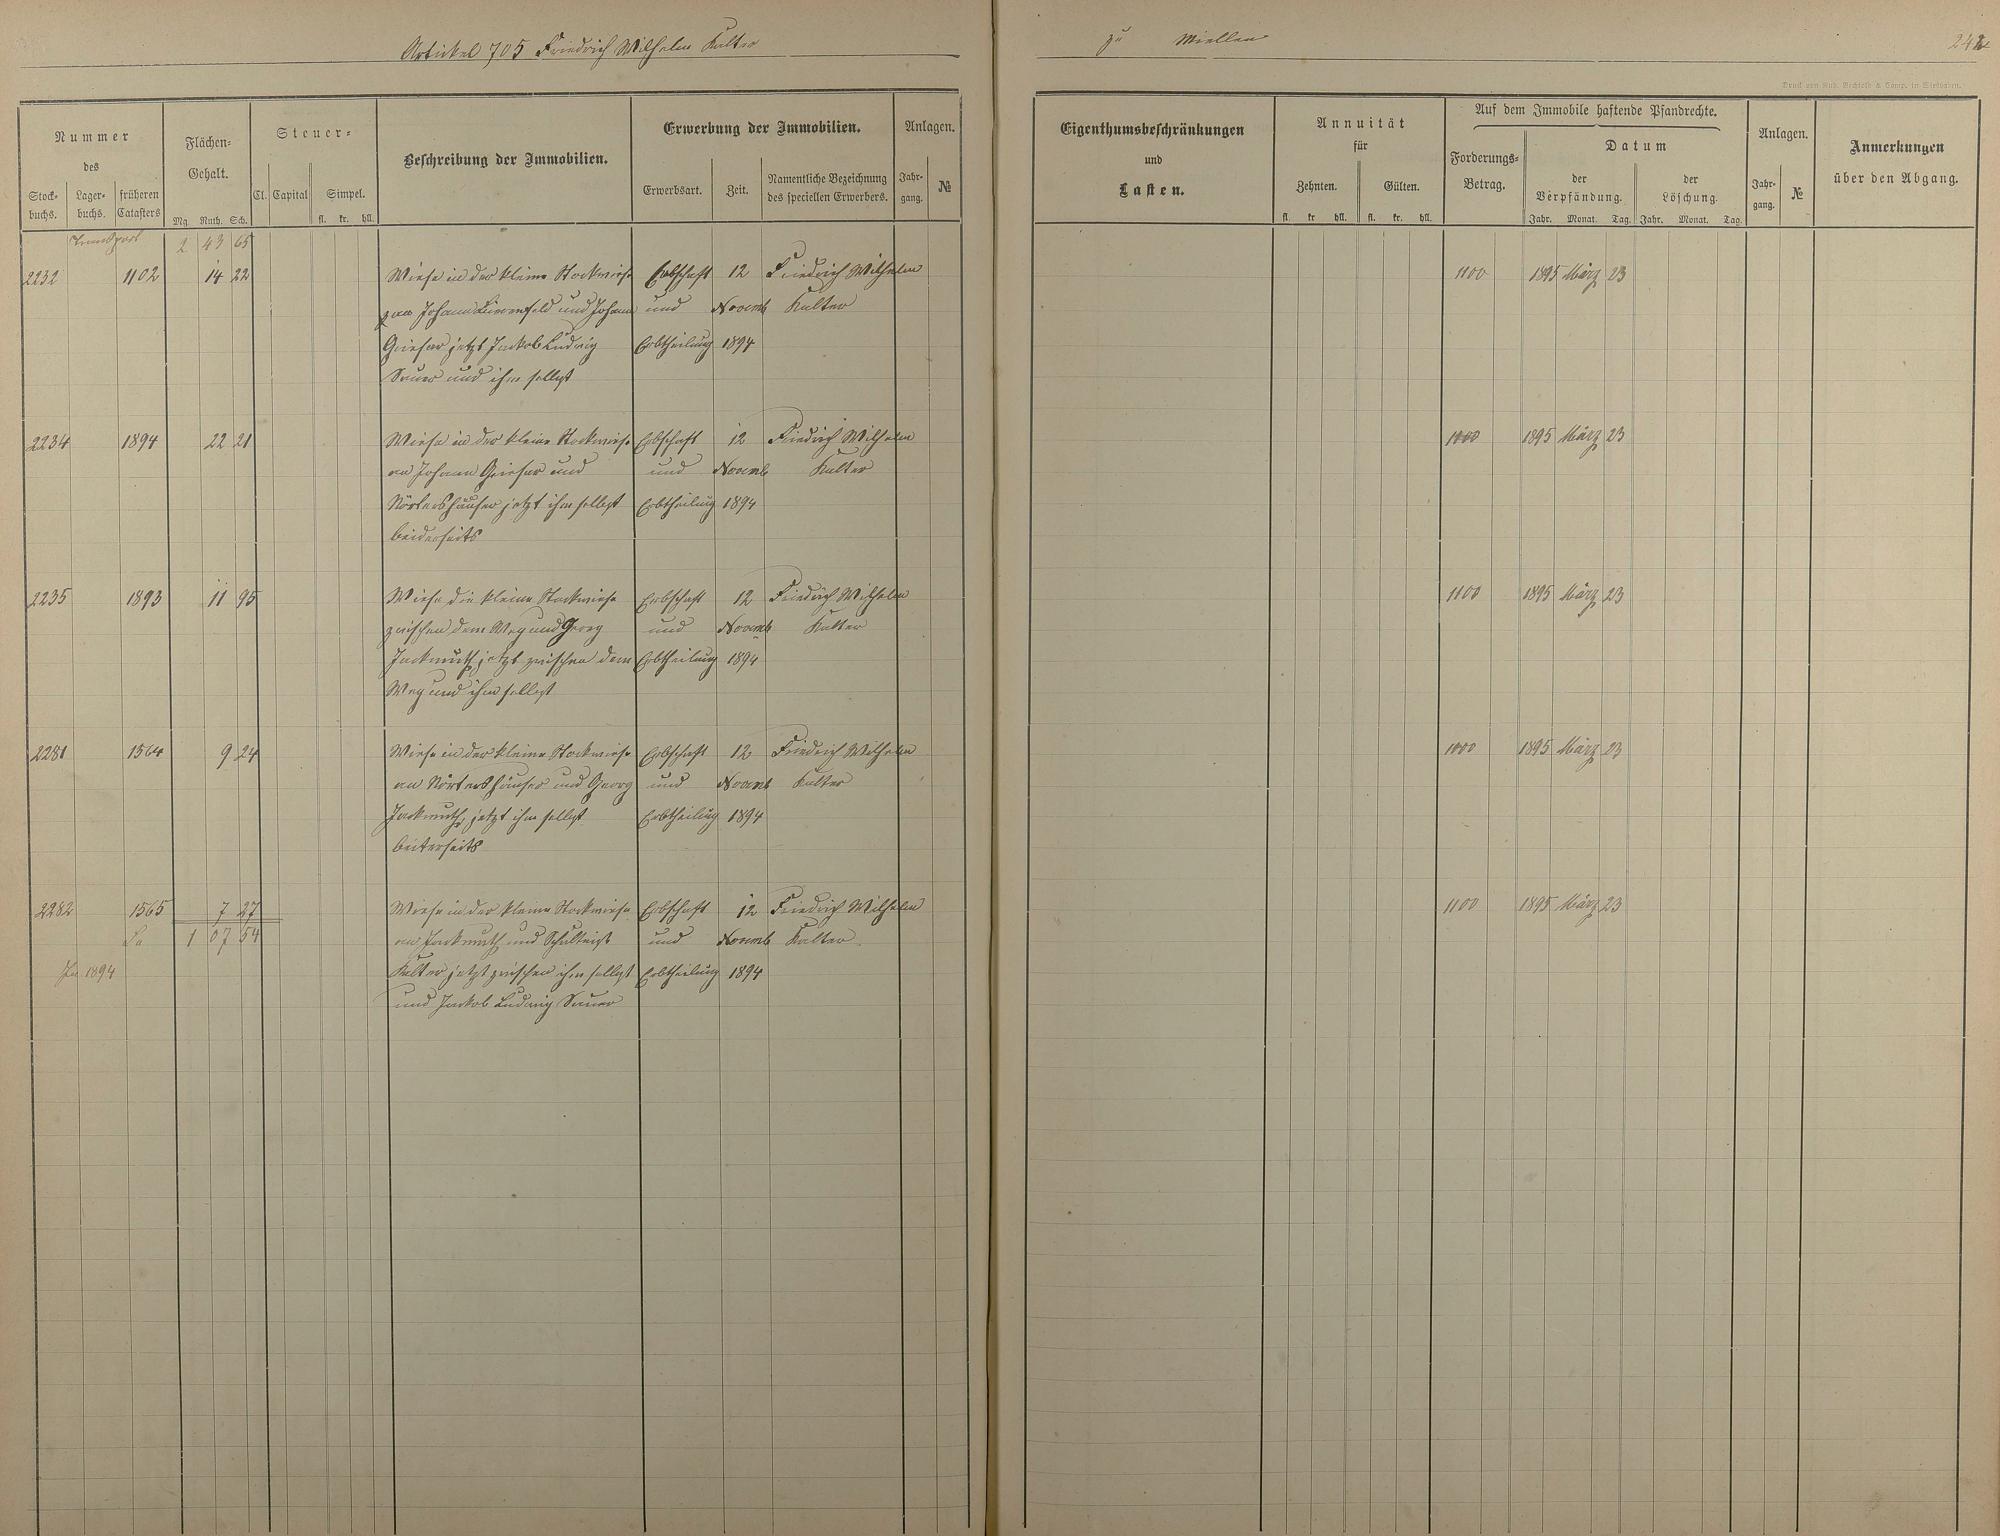 Artickel 705 Friedrich Wilhelm Kalter
zu Miellen
242
Druck von Rud. Bechtold & Comp. in Wiesbaden.
Nummer
des
Stock-
buchs.
Lager-
buchs.
früheren
Catasters
Flächen-
Gehalt.
Mg. Ruth. Sch.
Steuer-
Cl. Capital Simpel.
fl. kr. hll.
Beschreibung der Immobilien.
Erwerbung der Immobilien.
Erwerbsart. Zeit.
Namentliche Bezeichnung
des speciellen Erwerbers.
Anlagen.
Jahr-
gang.
№
Eigenthumsbeschränkungen
und
Lasten.
Annuität
für
Zehnten. Gülten.
fl. kr hll. fl. kr. hll.
Auf dem Immobile haftende Pfandrechte.
Forderungs-
Betrag.
Datum
der
Verpfändung.
Jahr. Monat. Tag.
der
Löschung.
Jahr. Monat. Tag.
Anlagen.
Jahr-
gang.
№
Anmerkungen
über den Abgang.
Transport 2 43 65
2232 1102 14 22 Wiese in der kleine Stockwiese Erbschaft 12 Friedrich Wilhelm 1100 1895 März 23
Johann und Johann und Novemb Kalter
Grieser jetzt Jackob Ludwig Erbtheilung 1894
Sauer und ihm selbst
2234 1894 22 21 Wiese in der kleine Stockwiese Erbschaft 12 Friedrich Wilhelm 1100 1895 März 23
an Johann Grieser und und Novemb Kalter
Nörtershäuser jetzt ihm selbst Erbtheilung 1894
beiderseits
2235 1893 11 95 Wiese die kleine Stockwiese Erbschaft 12 Friedrich Wilhelm 1100 1895 März 23
zwischen dem Weg und Georg und Novemb Kalter
Jackmuth jetzt zwischen dem Erbtheilung 1894
Weg und ihm selbst
2281 1564 9 24 Wiese in der kleine Stockwiese Erbschaft 12 Friedrich Wilhelm 1100 1895 März 23
an Nörtershäuser und Georg und Novemb Kalter
Jackmuth jetzt ihm selbst Erbtheilung 1894
beiterseits
2282 1565 7 27 Wiese in der kleine Stockwiese Erbschaft 12 Friedrich Wilhelm 1100 1895 März 23
Sa 1 07 54 an Jackmuth und Schultheist und Novemb Kalter
1894 Kalter jetzt zwischen ihm selbst Erbtheilung 1894
und Jackob Ludwig Sauer